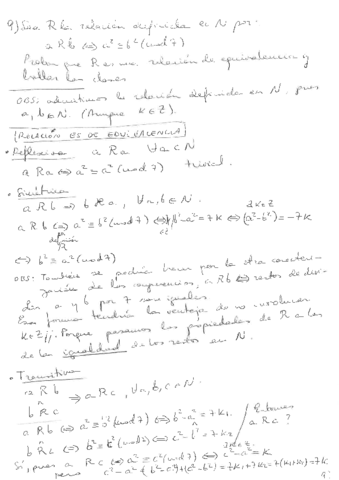 9) Sea R la relación definida en N por:
a R b ⇔ a² ≡ b² (mod 7)
Probar que R es una relación de equivalencia y
hallar las clases
OBS: admitimos la relación definida en N, pues
a, b ∈ N. (Aunque K ∈ Z).
RELACIÓN ES DE EQUIVALENCIA
• Reflexiva a R a ∀a ∈ N
a R a ⇔ a² ≡ a² (mod 7) trivial.
• Simétrica
a R b ⇒ b R a, ∀a, b ∈ N.
a R b ⇔ a² ≡ b² (mod 7) ⇔ b² - a² = 7K ⇔ (a² - b²) = -7K
definición
⇔ b² ≡ a² (mod 7)
OBS: También se podría hacer por la otra caracteri-
zación de las congruencias, a R b ⇔ restos de divi-
dir a y b por 7 son iguales
Esa forma tendría la ventaja de no involucrar
K ∈ Z ¡¡. Porque pasamos las propiedades de R a las
de la igualdad de los restos en N.
• Transitiva
a R b
∧ ⇒ a R c, ∀a, b, c ∈ N
b R c
a R b ⇔ a² ≡ b² (mod 7) ⇔ b² - a² = 7K₁ Entonces
b R c ⇔ b² ≡ c² (mod 7) ⇔ c² - b² = 7K₂ a R c?
Sí, pues a R c ⇔ a² ≡ c² (mod 7) ⇔ c² - a² = K
pero c² - a² = (b² - a²) + (c² - b²) = 7K₁ + 7K₂ = 7(K₁ + K₂) = 7K